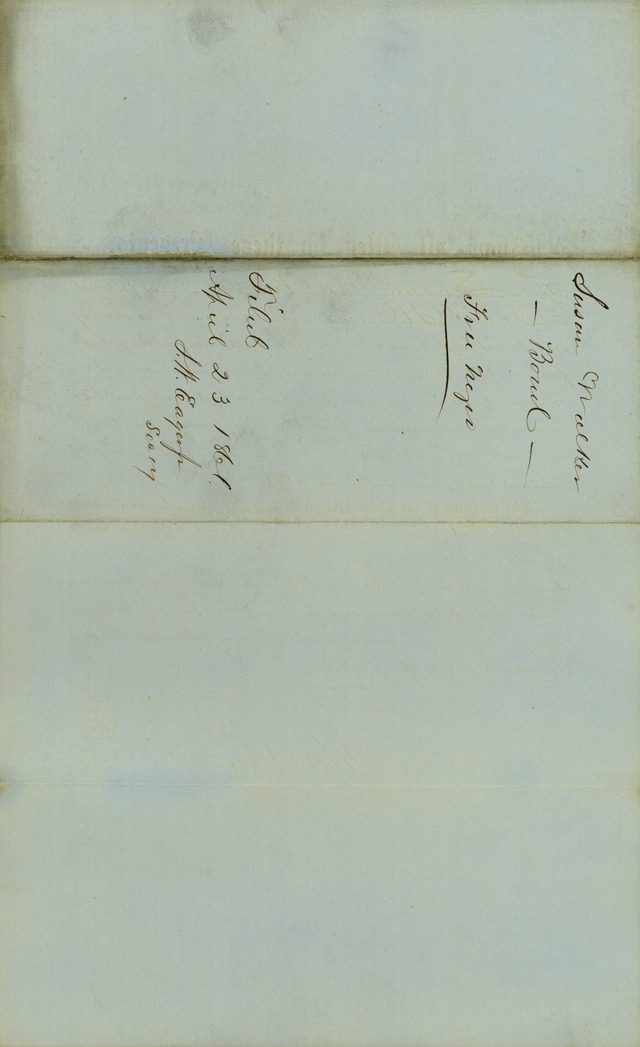 Susan Walker
— Bond —
Free Negro
Filed
April 23 1861.
Secry